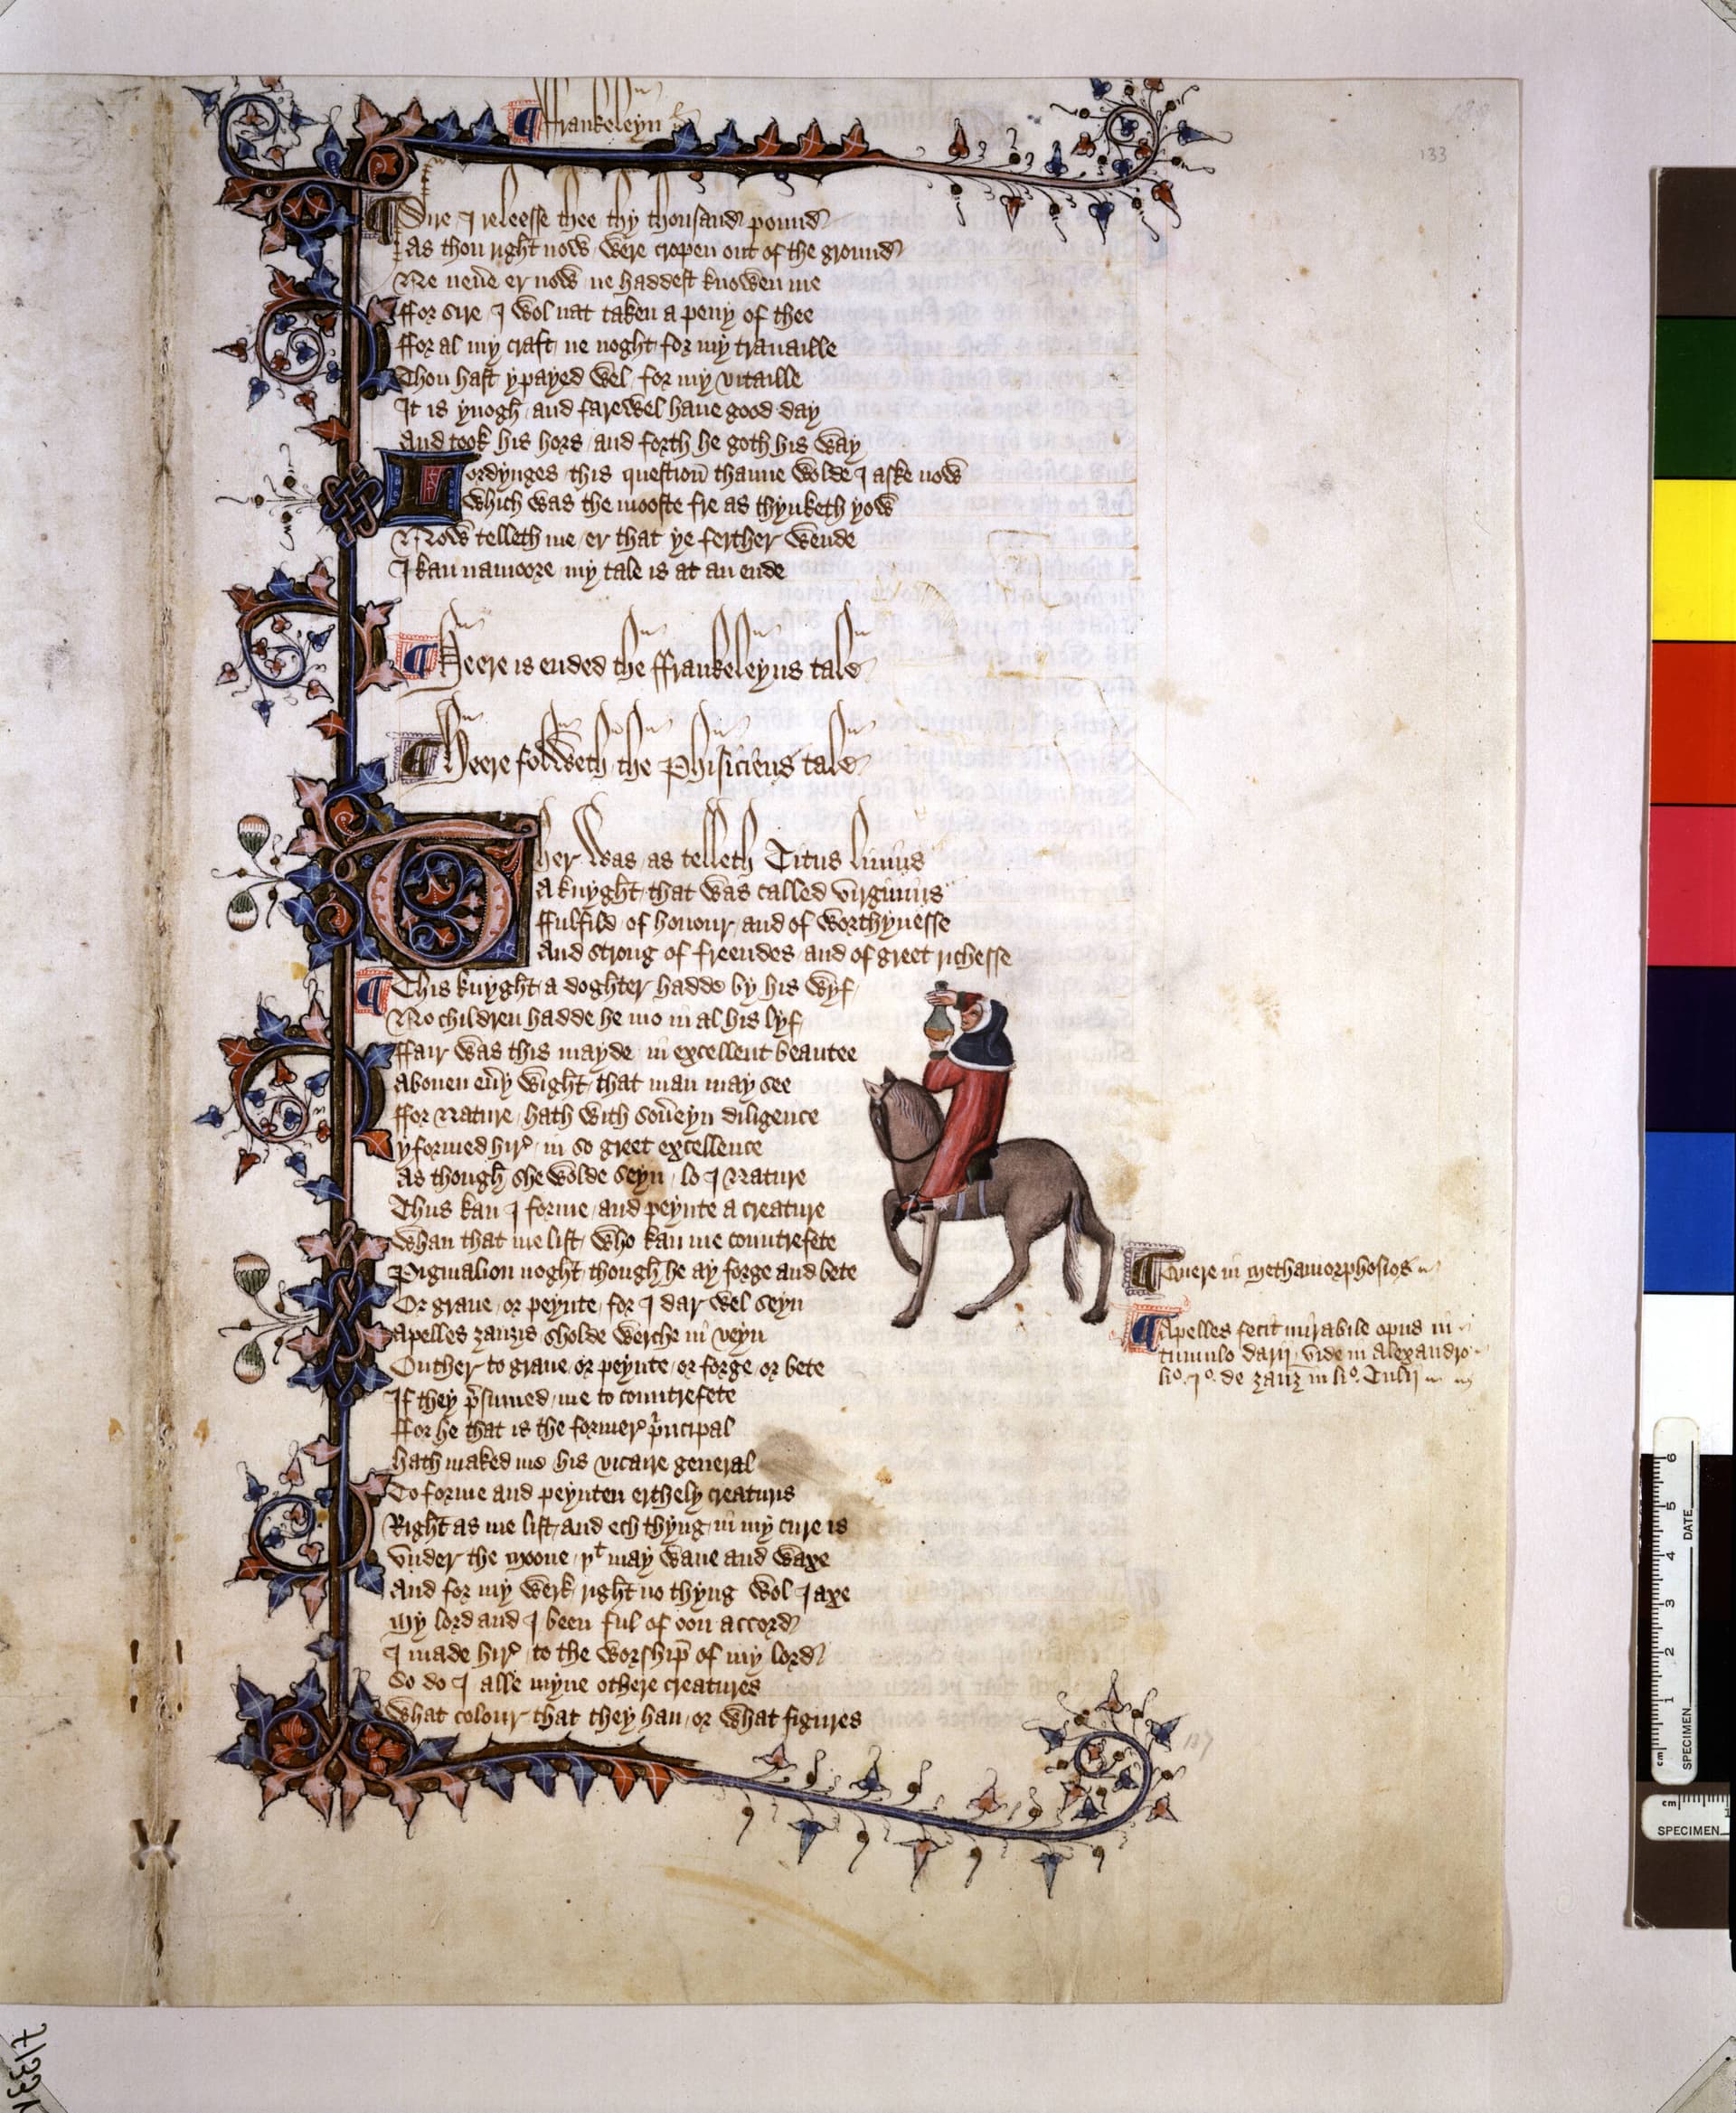 ffrankeleyn
133
Sire I releesse thee thy thousand pound
As thou right now were cropen out of the ground
Ne neue er now ne haddest knowen me
ffor sire I wol nat taken a peny of thee
ffor al my craft ne noght for my trauaille
Thou hast ypayed wel for my vitaille
It is ynogh and farewel haue good day
And took his hors and forth he goth his way
Lordynges this question thanne wolde I aske now
Which was the mooste fre as thynketh yow
Now telleth me er that ye ferther wende
I kan namoore my tale is at an ende
Heere is ended the ffrankeleyns tale
Heere folweth the Phisiciens tale
Ther was as telleth Titus liuius
A knyght that was called virginius
ffulfild of honour and of worthynesse
And strong of freendes and of greet richesse
This knyght a doghter hadde by his wyf
No children hadde he mo in al his lyf
ffair was this mayde in excellent beautee
Abouen eu̅y wight that man may see
ffor Nature hath with sou̅eyn diligence
yformed hir in so greet excellence
As though she wolde seyn lo I Nature
Thus kan I forme and peynte a creature
Whan that me list who kan me countrefete
Pigmalion noght though he ay forge and bete
Or graue or peynte for I dar wel seyn
Apelles zanzis sholde werche in veyn
Outher to graue or peynte or forge or bete
If they p̅sumed me to countrefete
ffor he that is the former p̅ncipal
Hath maked me his vicaire general
To forme and peynten erthely creaturis
Right as me list and ech thyng in my cure is
Vnder the Moone þᵗ may wane and waxe
And for my werk right no thyng wol I axe
My lord and I been ful of oon accord
I made hir to the worship of my lord
So do I alle myne othere creatures
What colour that they han or what figures
Quere in Methamorphosios
Apelles fecit mirabile opus in
tumulo darij vide in Alexandro
li°. 1°. de zanz in li°. Tulij
137
cm 1 2 3 4 5 6
SPECIMEN DATE
cm 1
SPECIMEN